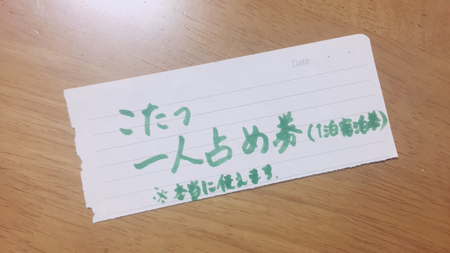 Date
こたつ
一人占め券(1泊宿泊券)
※本当に使えます.